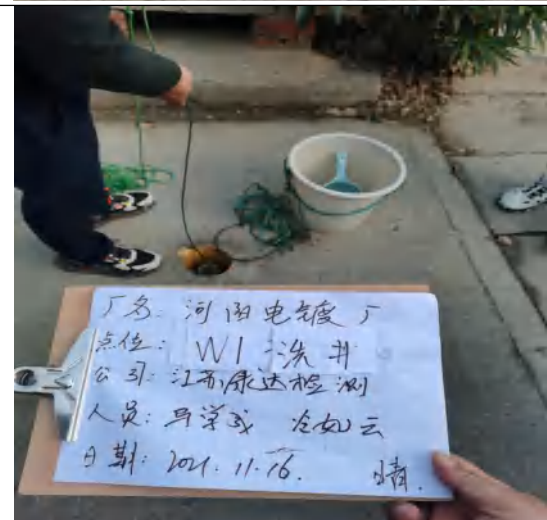 厂名: 河函电镀厂
点位: W1 洗井
公司: 江苏康达检测
人员: 冷如云
日期: 2021.11.16. 晴.